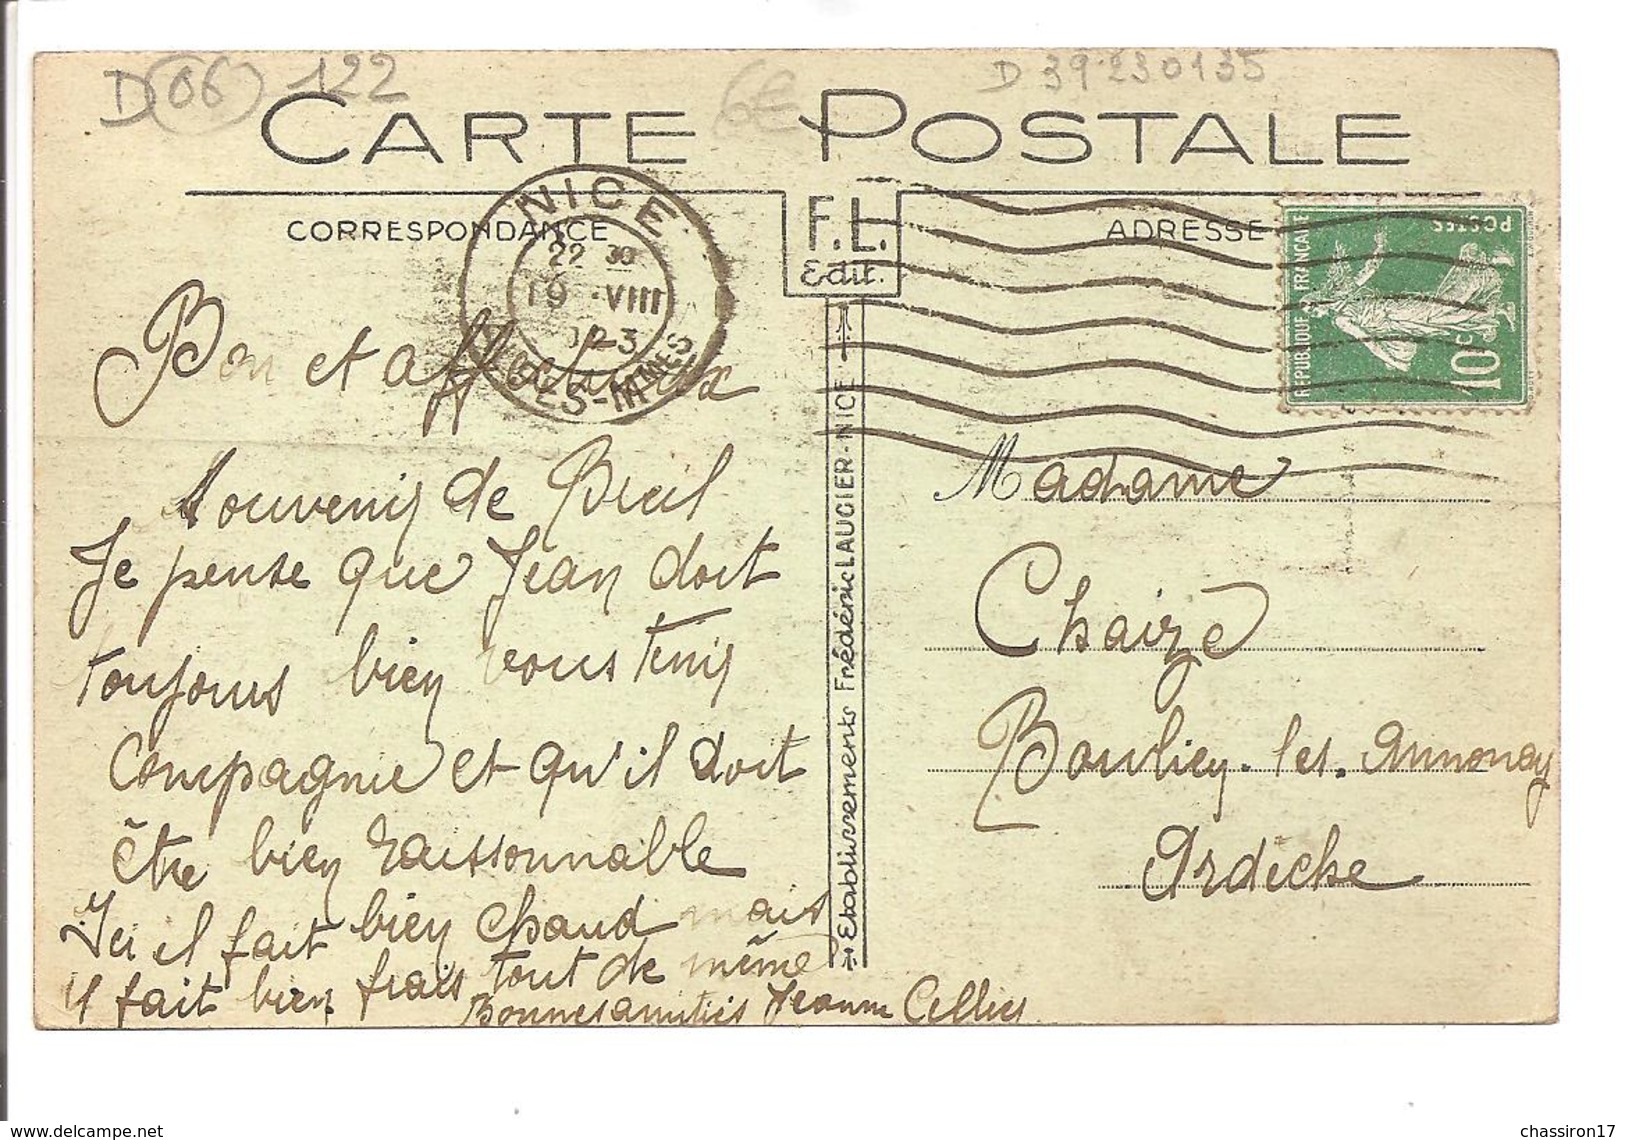 D (06) 122
6€
D 39.230135
CARTE POSTALE
CORRESPONDANCE
F.L.
Edit.
ADRESSE
NICE
22 30
19 -VIII
23
ALPES-MMES
REPUBLIQUE FRANCAISE
POSTES
10c
Bon et affectueux
souvenir de Breil
Je pense que Jean doit
toujours bien vous tenir
Compagnie et qu'il doit
être bien raisonnable
Ici il fait bien chaud mais
il fait bien frais tout de même
Bonnes amitiés Jeanne Cellier
Etablissements Frédéric LAUGIER-NICE
Madame
Chaize
Boulieu-les-Annonay
Ardèche
delcampe.net
chassiron17